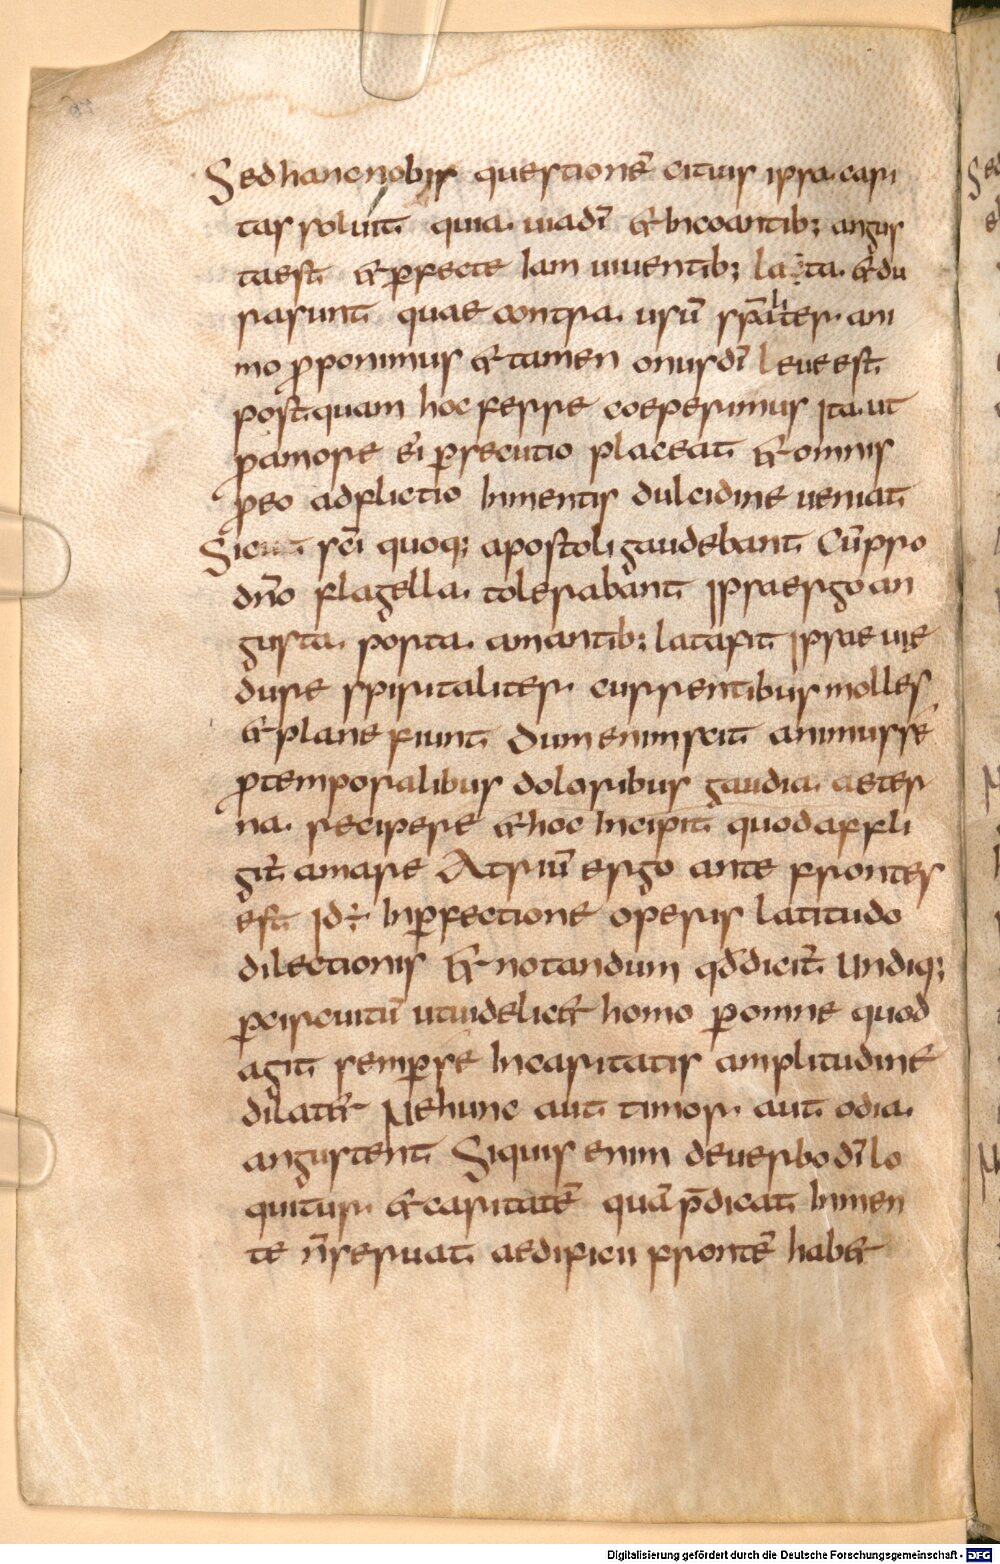 Sed hanc nobis questionē citius ipsa cari
tas soluit quia uia dī & incoantib; angus
ta est & ꝑfecte iam uiuentib; lata & du
ra sunt quae contra usū sp̄aliter ani
mo ꝓponimus & tamen onus dī leue est
postquam hoc ferre coeperimus ita ut
ꝓ amore ei ꝑsecutio placeat & omnis
ꝓ eo adflictio in mentis dulcidine ueniat
Sicut sc̄i quoq; apostoli gaudebant cū pro
dn̄o flagella tolerabant ipsa ergo an
gusta porta amantib; lata fit ipsae uie
dure spiritaliter currentibus molles
& plane fiunt dum enim scit animus sē
ꝓ temporalibus doloribus gaudia aeter
na recipere & hoc incipit quod affli
git̄ amare Atriū ergo ante frontes
est id ÷ in ꝑfectionē operis latitudo
dilectionis & notandum qđ dicit̄ undiq;
ꝑ circuitū ut uidelic& homo ꝑ omne quod
agit semꝑ se in caritatis amplitudinē
dilat& Ne hunc aut timor aut odia
angustent Siquis enim de uerbo dī lo
quitur & caritatē quā p̄dicat in men
te n̄ seruat aedificii frontē hab&
Digitalisierung gefördert durch die Deutsche Forschungsgemeinschaft - DFG